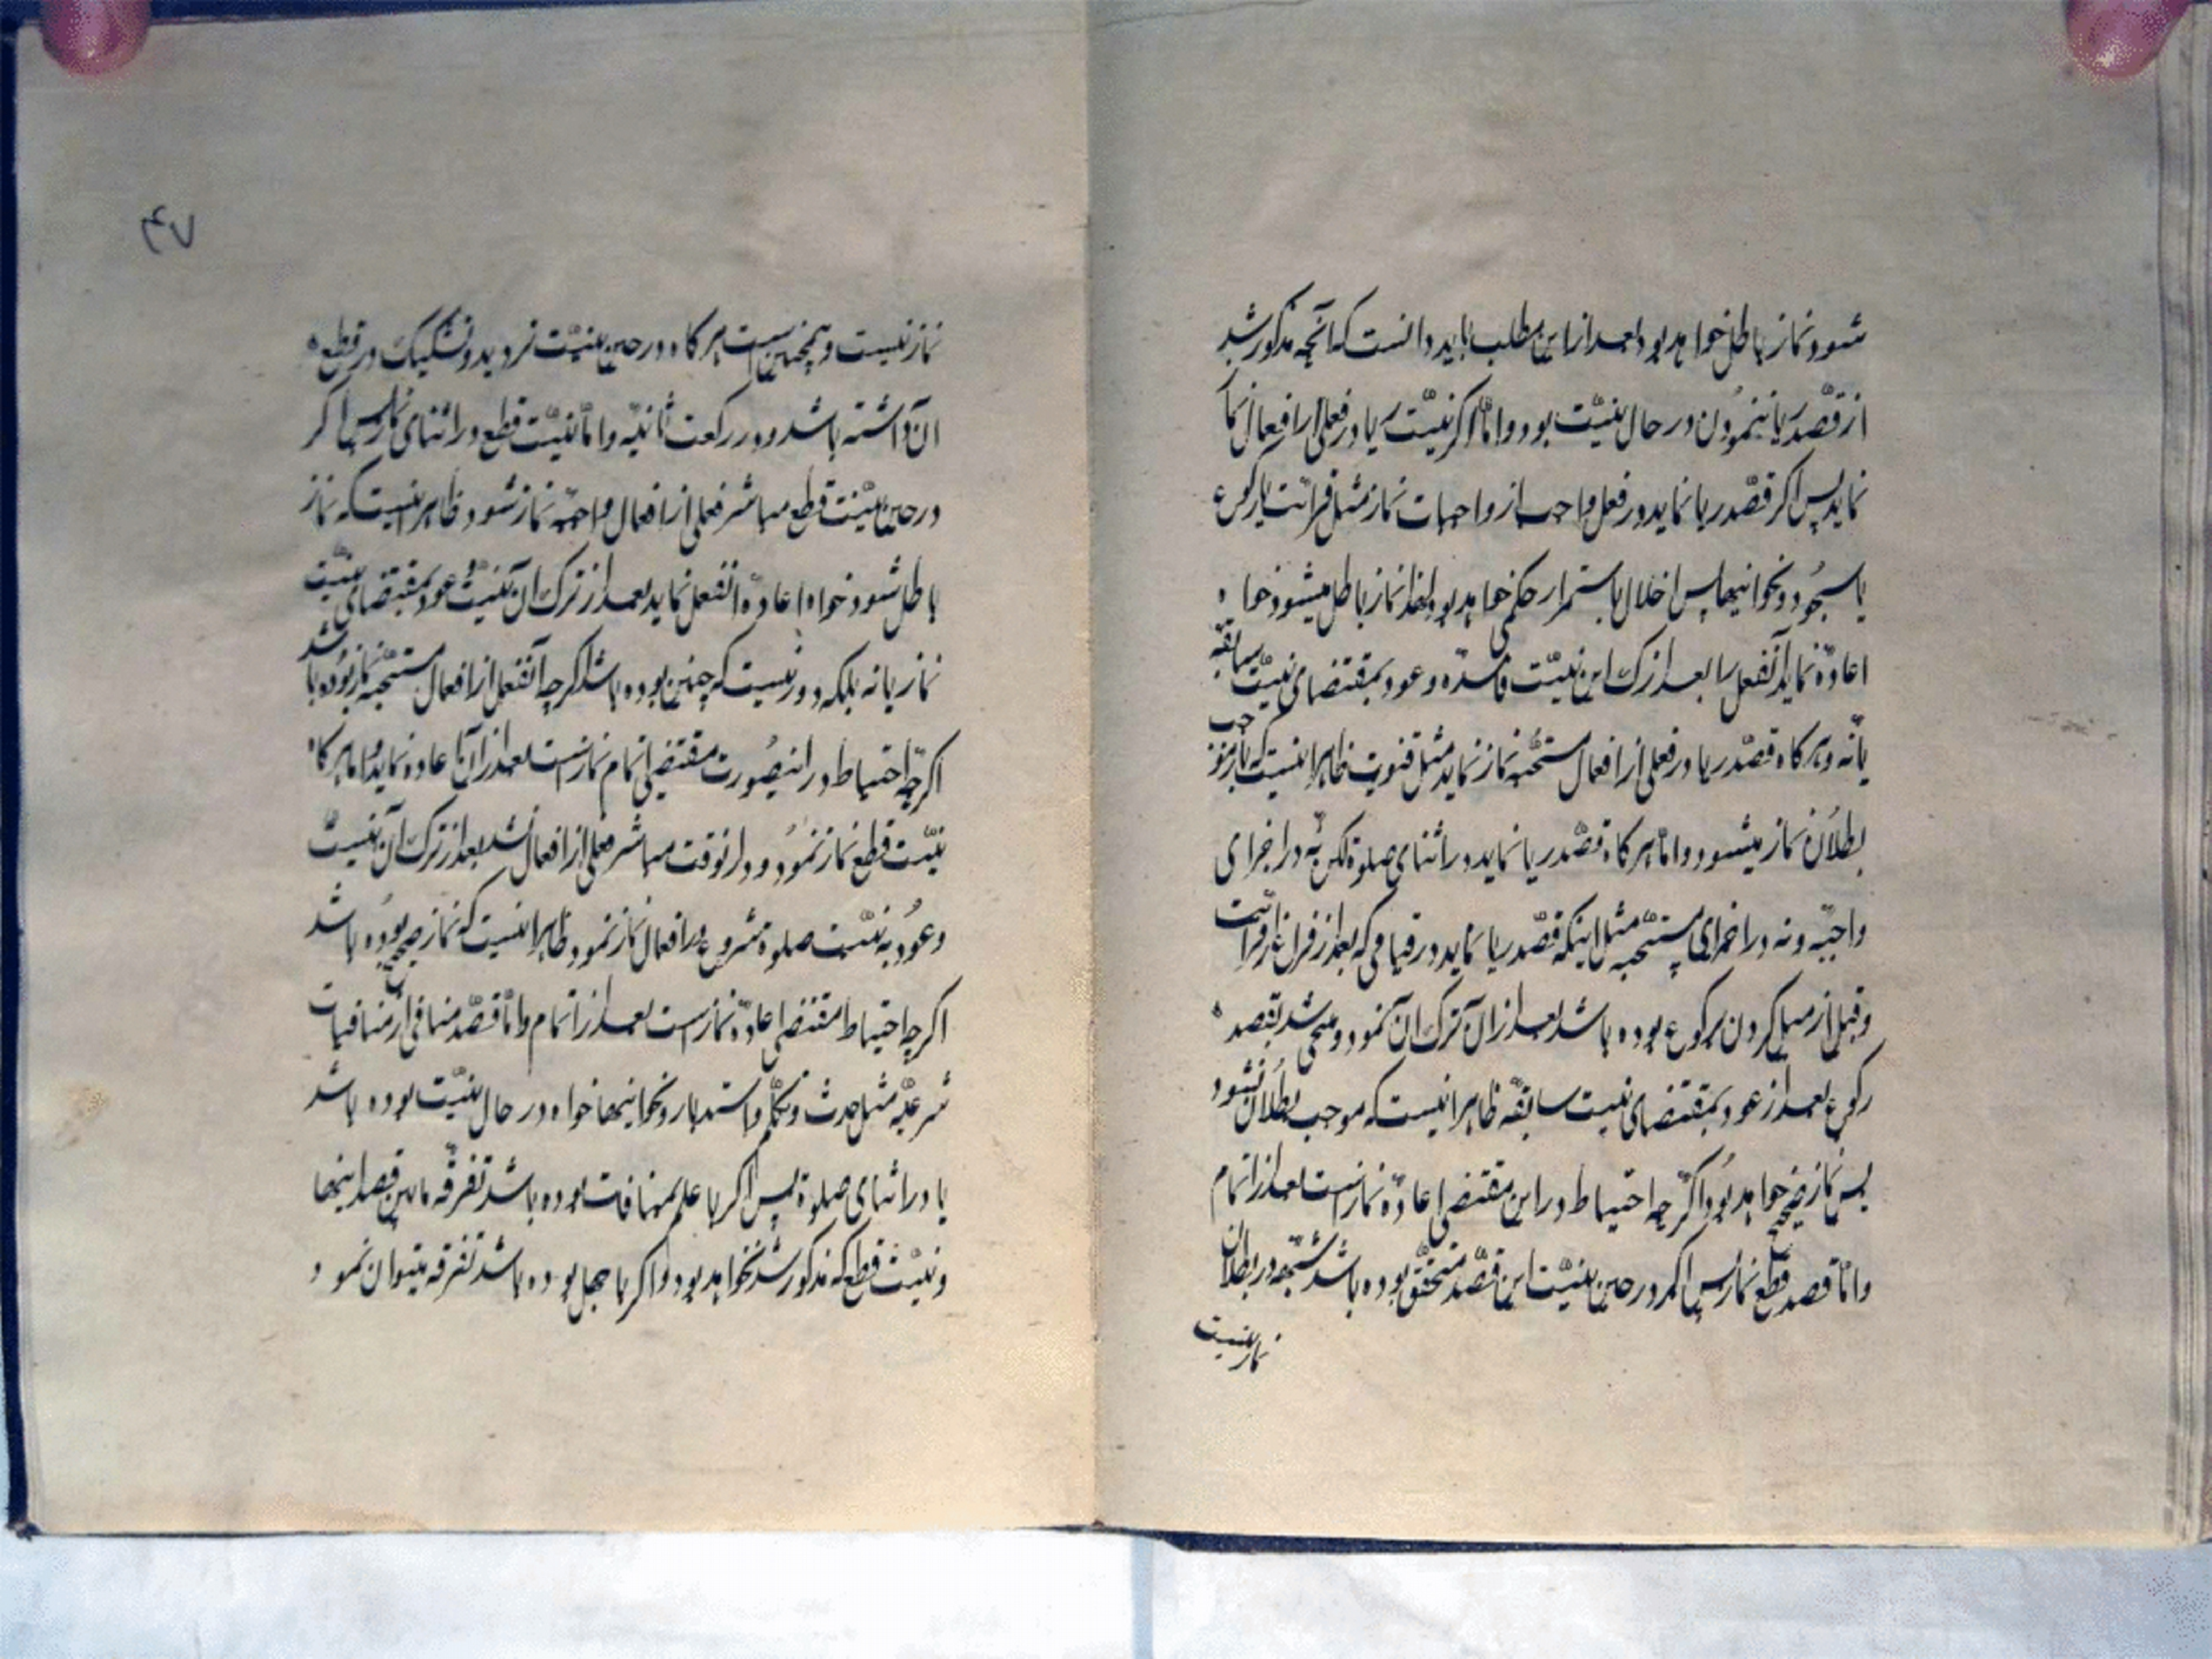 شود نماز باطل خواهد بود بعد از این مطلب باید دانست که آنچه مذکور شد
از قصد ریا ننمودن در حال نیّت بود و امّا اگر نیّت ریا در فعلی از افعال نماز
نماید پس اگر قصد ریا نماید در فعل واجب از واجبات نماز مثل قرائت یا رکوع
یا سجود و نحو اینها پس اخلال باستمرار حکمی خواهد بود لهذا نماز باطل میشود خواه
اعادّه نماید آنفعل را بعد از ترک این نیّت فاسدّه و عود بمقتضای نیّت سابقه
یا نه و هرگاه قصّد ریا در فعلی از افعال مستحّبه نماز نماید مثل قنوت ظاهرا اینست که باز موجب
بطلان نماز میشود و امّا هرگاه قصّد ریا نماید در اثنای صلوة لکن نه در اجزای
واجبّه و نه در اجزای مستحّبه مثل اینکه قصّد ریا نماید در قیامی که بعد از فراغ از قرائت
و قبل از میل کردن برکوع بوده باشد بعد از آن ترک آن نمود و منحنی شد بقصد
رکوع بعد از عود بمقتضای نیت سابقّه ظاهرا اینست که موجب بطلان نشود
پس نماز صحیح خواهد بود اگر چه احتیاط در این مقتضی اعادّه نماز است بعد از اتمام
و امّا قصد قطع نماز پس اگر در حین نیّت این قصّد متحقّق بوده باشد شبّهه در بطلان
نماز نیست
۴۷
نماز نیست و همچنین است هرگاه در حین نیّت تردید و تشکیک در قطع
آن داشته باشد و در رکعت ثانیّه و امّا نیّت قطع در اثنای نماز پس اگر
در حین نیّت قطع مباشر فعلی از افعال واجبّه نماز شود ظاهر اینست که نماز
باطل شود خواه اعادّه آنفعل نماید بعد از ترک آن نیّت و عود بمقتضای نیّت
نماز یا نه بلکه دور نیست که چنین بوده باشد اگر چه آنفعل از افعال مستحّبه نماز بوده باشد
اگر چه احتیاط در اینصورت مقتضی اتمام نماز است بعد از آن اعاده نماید و امّا هرگاه
نیّت قطع نماز نمود و در آنوقت مباشر فعلی از افعال نشد بعد از ترک آن نیّت
و عود به نیّت صلوة مشروع در افعال نماز نمود ظاهرا اینست که نماز صحیح بوده باشد
اگر چه احتیاط مقتضی اعادّه نماز است بعد از اتمام و امّا قصّد منافی از منافیات
شرعیّه مثل حدث و تکلّم و استدبار و نحو اینها خواه در حال نیّت بوده باشد
یا در اثنای صلوة پس اگر با علم بمنافات بوده باشد تفرقّه مابین قصد اینها
و نیّت قطع که مذکور شد نخواهد بود و اگر با جهل بوده باشد تفرقه میتوان نمود